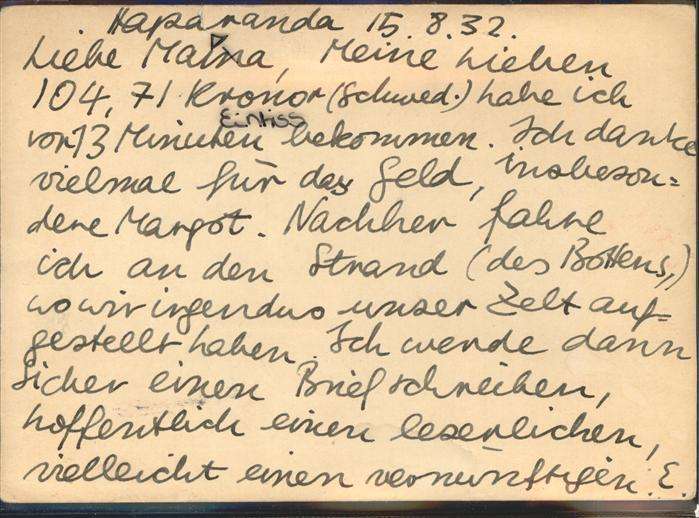 Haparanda 15.8.32.
Liebe Mama, Meine Lieben
104,71 Kronor (Schwed.) habe ich
vor 13 Minuten bekommen. Ich danke
vielmal für das Geld, insbeson=
dere Margot. Nachher fahre
ich an den Strand (des Bottens,,)
wo wir irgendwo unser Zelt auf=
gestellt haben. Ich werde dann
sicher einen Brief schreiben,
hoffentlich einen leserlichen,
vielleicht einen vernünftigen. E.